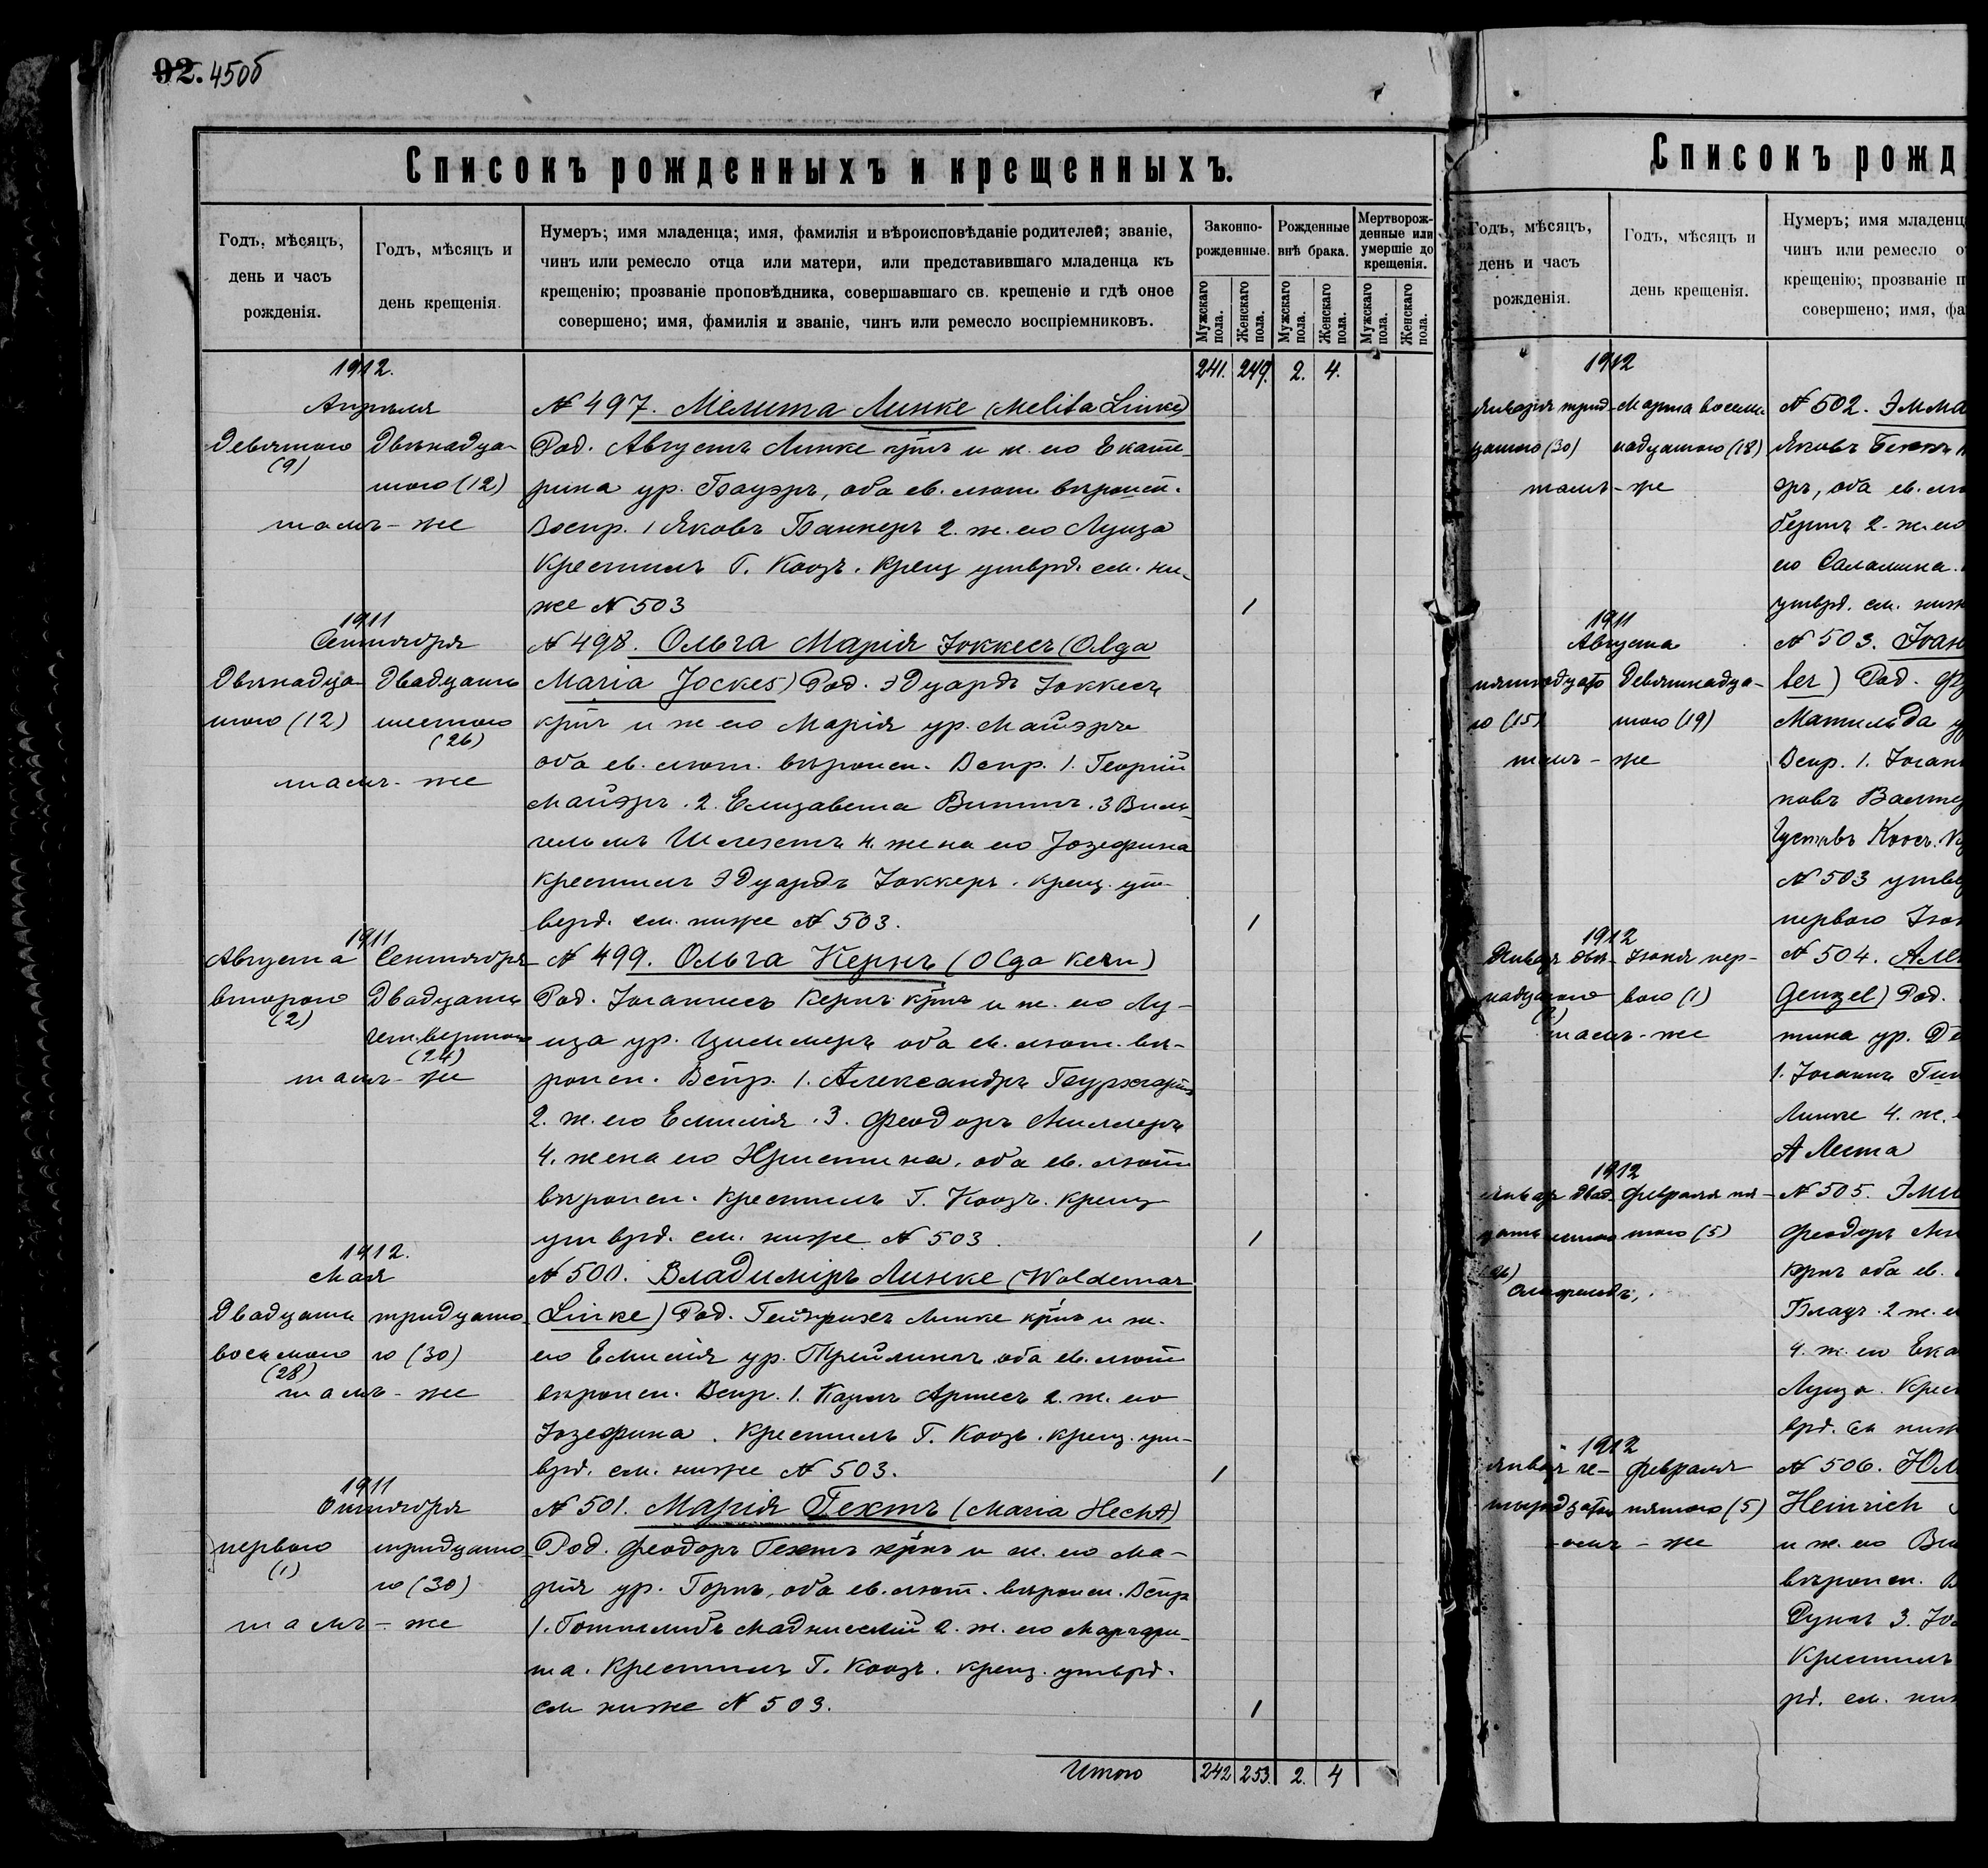 92. 450б
Списокъ рожденныхъ и крещенныхъ.
Годъ, мѣсяцъ, день и часъ рожденія.
Годъ, мѣсяцъ и день крещенія.
Нумеръ; имя младенца; имя, фамилія и вѣроисповѣданіе родителей; званіе,
чинъ или ремесло отца или матери, или представившаго младенца къ
крещенію; прозваніе проповѣдника, совершавшаго св. крещеніе и гдѣ оное
совершено; имя, фамилія и званіе, чинъ или ремесло воспріемниковъ.
Законно-рожденные.
Рожденные внѣ брака.
Мертворож-денные или умершіе до крещенія.
Мужскаго пола. Женскаго пола. Мужскаго пола. Женскаго пола. Мужскаго пола. Женскаго пола.
241. 249. 2. 4.
1912.
Апрѣля
Девятаго (9)
Двѣнадца-
таго (12)
тамъ-же
№ 497. Мелита Линке (Melita Linke)
Род. Августъ Линке крнъ и ж. его Екате-
рина ур. Бауэръ, оба ев. лют. вѣроисп.
Воспр. 1 Яковъ Банкеръ 2. ж. его Луиза
Крестилъ Г. Коозъ. Крещ утврд. см. ни-
же № 503
1
1911
Сентября
Двѣнадца-
таго (12)
Двадцать
шестого
(26)
тамъ-же
№ 498. Ольга Марія Іоккесъ (Olga
Maria Jockes) Род. Эдуардъ Іоккесъ
крнъ и ж его Марія ур. Майэръ
оба ев. лют. вѣроисп. Вспр. 1. Георгій
Майэръ. 2. Елизавета Виттъ. 3 Виль-
гельмъ Шлехтъ 4. жена его Іозефина
Крестилъ Эдуардъ Іоккеръ. Крещ. ут-
верд. см. ниже № 503.
1
1911
Августа
второго
(2)
Сентября
Двадцать
четвертаго
(24)
тамъ-же
№ 499. Ольга Кернъ (Olga Kern)
Род. Іоганнесъ Кернъ крнъ и ж. его Лу-
иза ур. Циммеръ оба ев. лют. вѣ-
роисп. Вспр. 1. Александръ
2. ж. его Емилія. 3. Феодоръ Миллеръ
4. жена его Христина. оба ев. лют.
вѣроисп. Крестилъ Г. Коозъ. Крещ
утврд. см. ниже № 503.
1
1912.
Мая
Двадцать
восьмого
(28)
тридцата-
го (30)
тамъ-же
№ 500. Владиміръ Линке (Woldemar
Linke) Род. Гейнрихъ Линке крнъ и ж.
его Емилія ур. Трейлингъ оба ев. лют
вѣроисп. Вспр. 1. Карлъ 2. ж. его
Іозефина. Крестилъ Г. Коозъ. Крещ. ут-
врд. см. ниже № 503.
1
1911
Октября
перваго
(1)
тридцата-
го (30)
тамъ-же
№ 501. Марія Гехтъ (Maria Hecht)
Род. Феодоръ Гехтъ крнъ и ж. его Ма-
рія ур. Горнъ, оба ев. лют. вѣроисп. Вспр
1. Готтлибъ 2. ж. его Маргари-
та. Крестилъ Г. Коозъ. Крещ. утврд.
см ниже № 503.
1
Итого 242 253. 2. 4
Списокъ рожд
Годъ, мѣсяцъ,
день и часъ
рожденія.
Годъ, мѣсяцъ и
день крещенія.
Нумеръ; имя младенц
чинъ или ремесло о
крещенію; прозваніе п
совершено; имя, фа
1912
Января трид-
цатаго (30)
Марта восем-
надцатаго (18)
тамъ-же
№ 502. Эмма
Яковъ
эръ, оба ев. лю
2. ж. его
его Саломина.
утврд. см. ниж
1911
Августа
пятнадцата-
го (15)
Девятнадца-
таго (19)
тамъ-же
№ 503. Іоан
ter) Род. Ф
Матильда у
Вспр. 1. Іоган
ковъ Валте
Густавъ Коозъ. К
№ 503 утве
перваго Іюн
1912
Января двѣ-
надцатаго
Іюня пер-
ваго (1)
тамъ-же
№ 504. Але
Genzel) Род.
тина ур. Де
1. Іоганъ Ги
Линке 4. ж.
А Леста
1912
Января двад-
цать шестого
(26)
Февраля пя-
таго (5)
№ 505. Эми
Феодоръ Ми
Кернъ оба ев.
2 ж. е
4. ж. его Ека
Луиза. Крес
врд. см ниж
1912
Января че-
Февраля
пятаго (5)
тамъ-же
№ 506. Юл
Heinrich
и ж. его Ви
вѣроисп. В
3. Іо
Крестилъ
рд. см. ниж